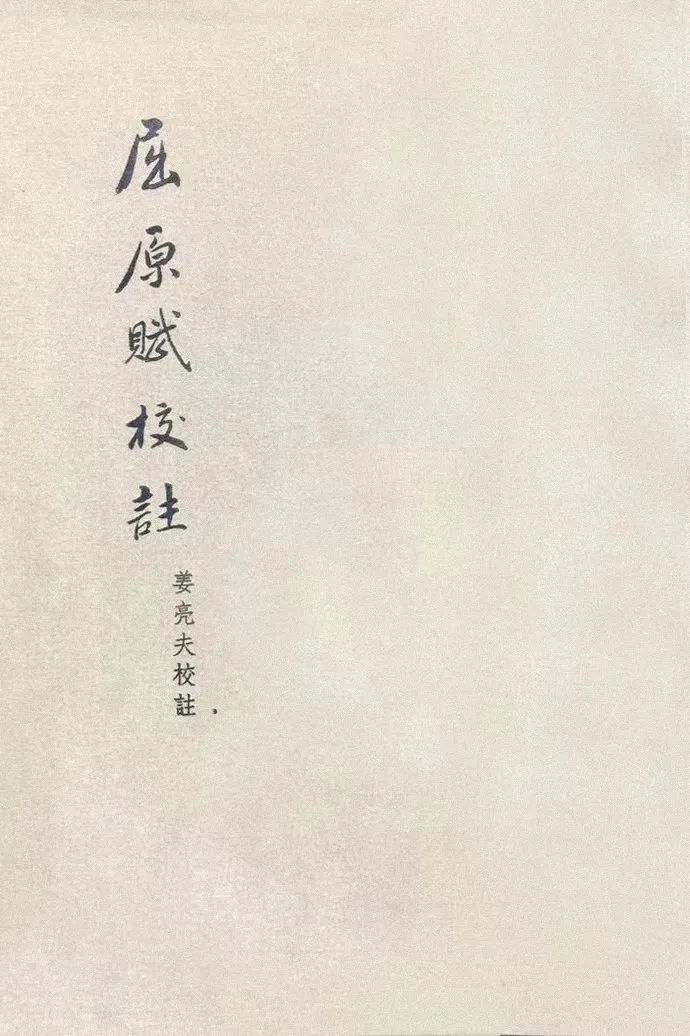 屈原賦校註
姜亮夫校註